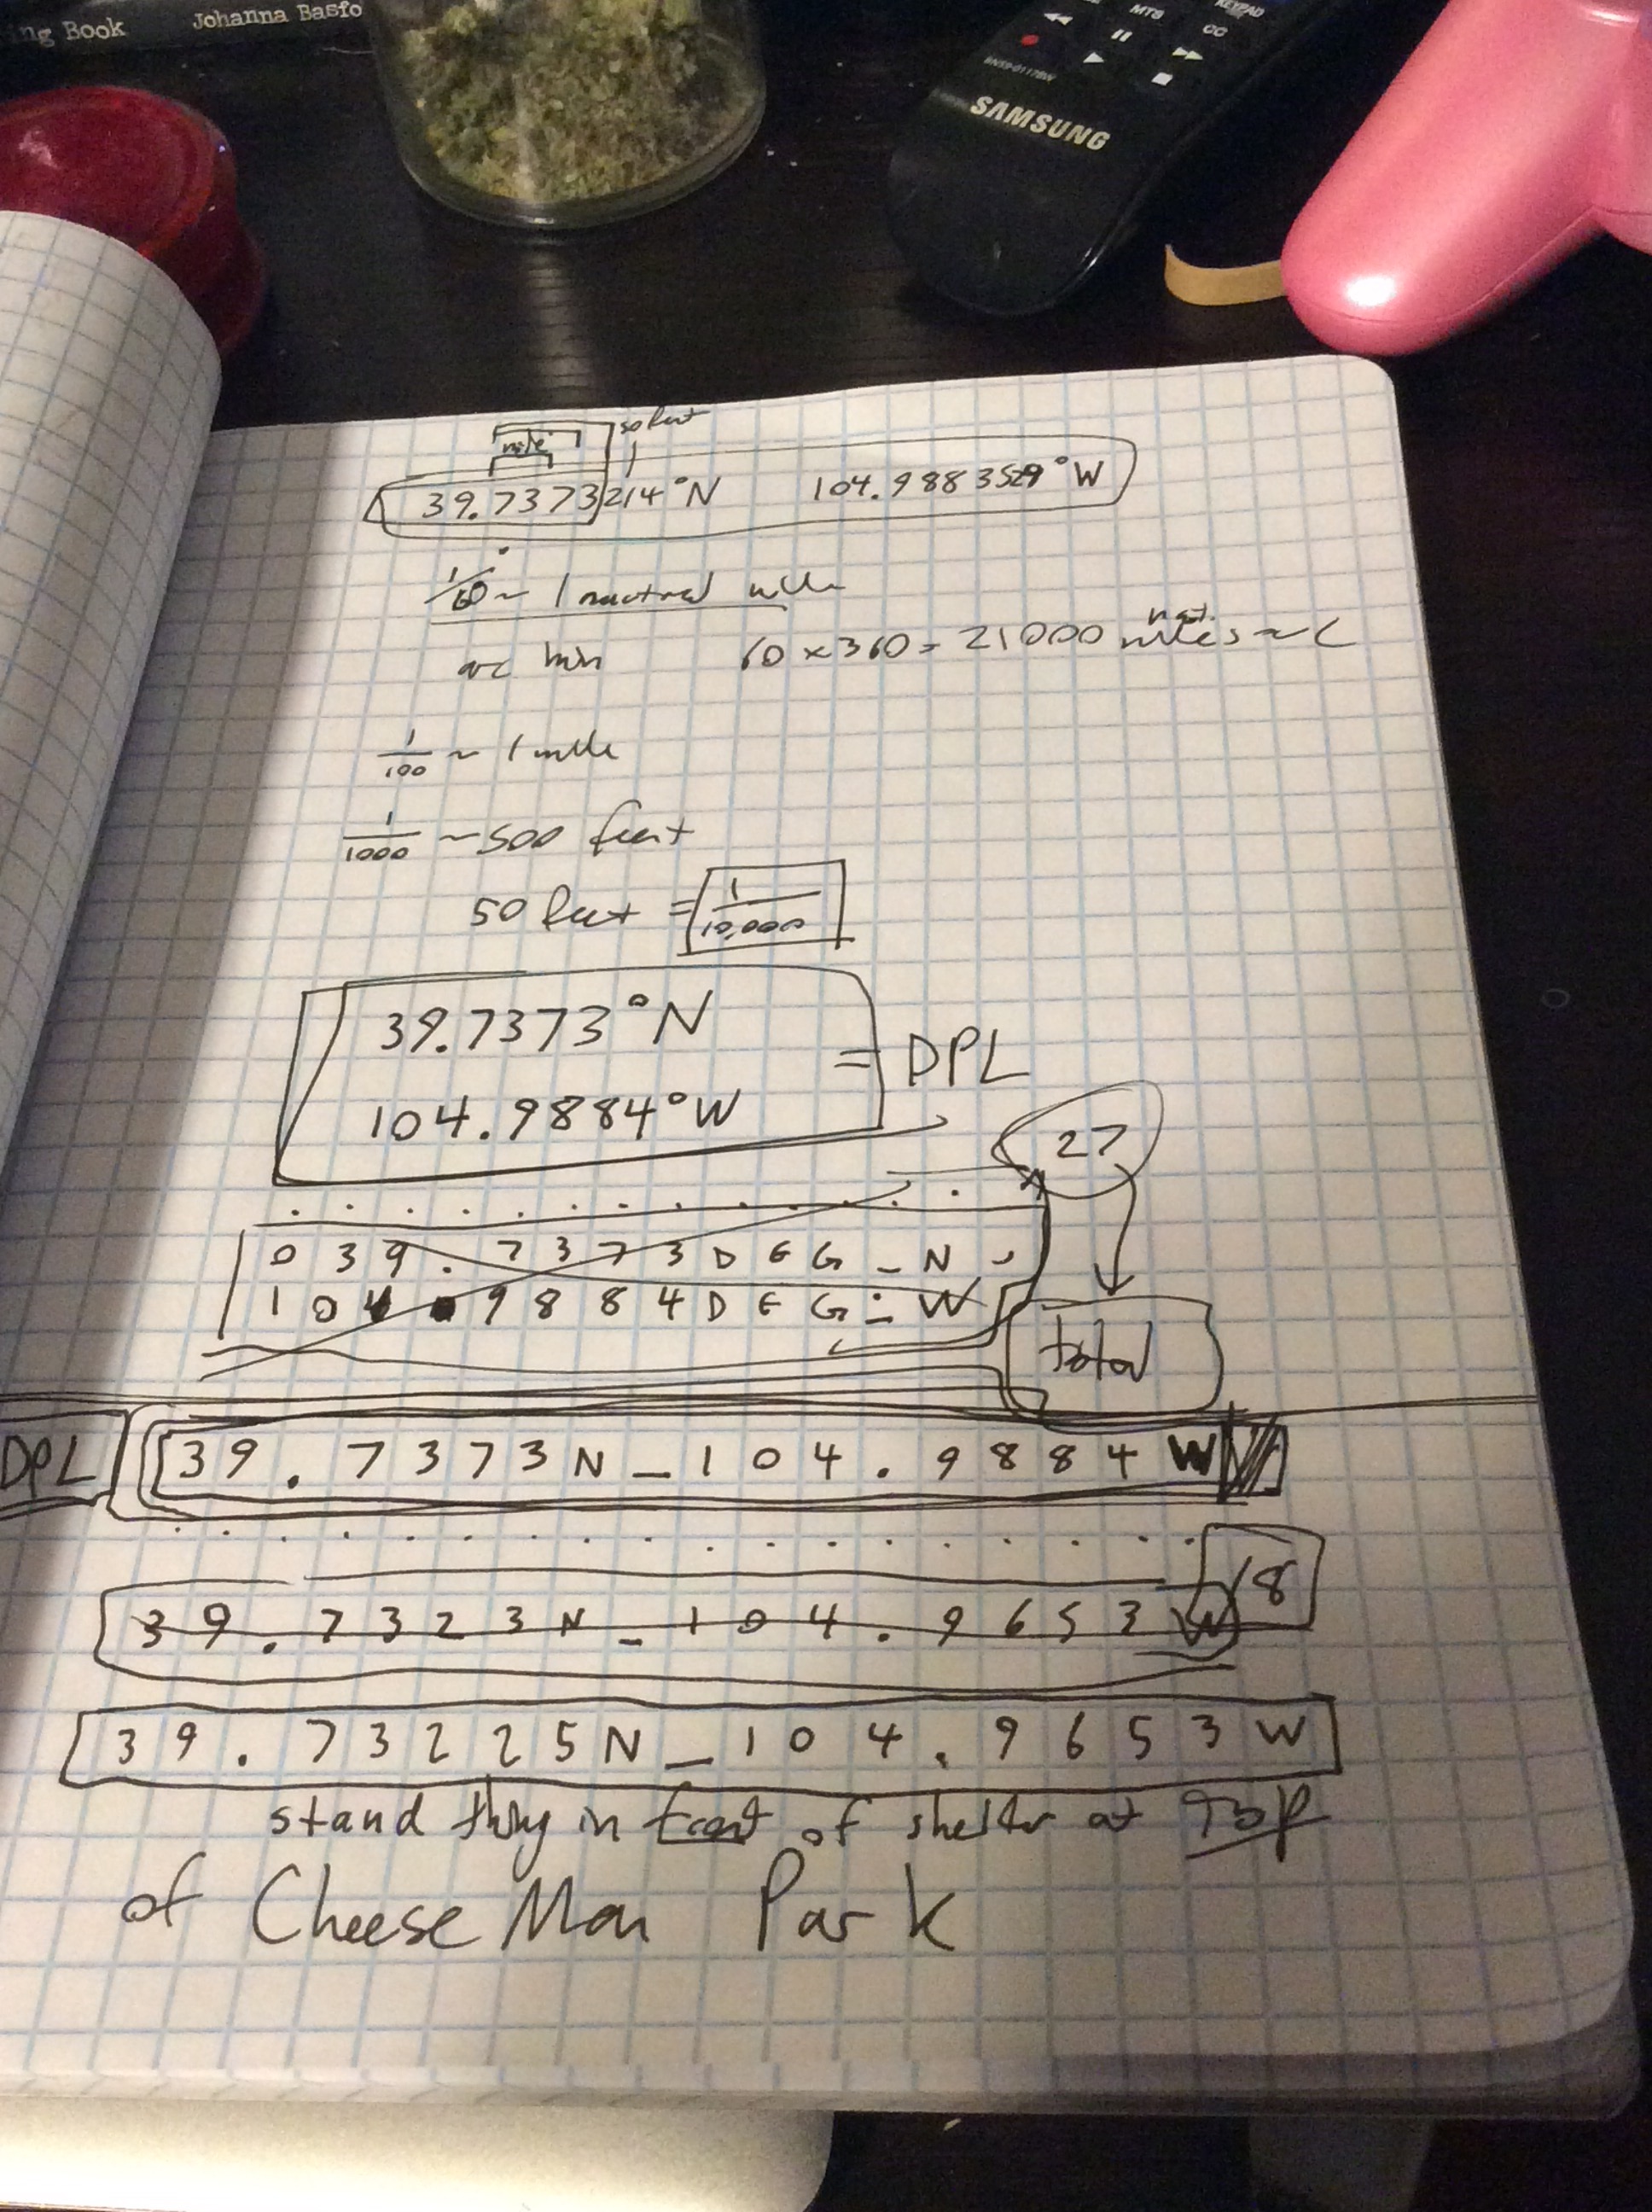 39.7373214°N 104.9883529°W
mile
50 feet
1/60° ~ 1 nautical mile
arc min 60 x 360 = 21000 naut. miles ~ C
1/100 ~ 1 mile
1/1000 ~ 500 feet
50 feet = 1/10,000
39.7373°N
104.9884°W
= DPL
27
039.7373DEG_N
104.9884DEG_W
total
DPL
39.7373N_104.9884W
39.7323N_104.9653W
18
39.73225N_104.9653W
stand thby in East of shelter at Top
of Cheese Man Park
SAMSUNG
MTS
CC
ing Book
Johanna Basfo